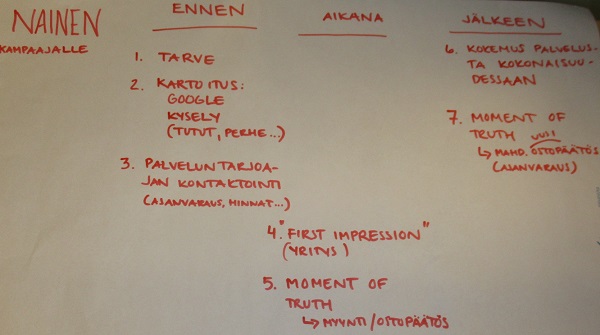 NAINEN
KAMPAAJALLE
ENNEN
1. TARVE
2. KARTOITUS:
GOOGLE
KYSELY
(TUTUT, PERHE...)
3. PALVELUN TARJOA-
JAN KONTAKTOINTI
(AJANVARAUS, HINNAT...)
AIKANA
4. "FIRST IMPRESSION"
(YRITYS)
5. MOMENT OF
TRUTH
↳ MYYNTI/OSTOPÄÄTÖS
JÄLKEEN
6. KOKEMUS PALVELUS-
TA KOKONAISUU-
DESSAAN
7. MOMENT OF
TRUTH UUSI
↳ MAHD. OSTOPÄÄTÖS
(AJANVARAUS)